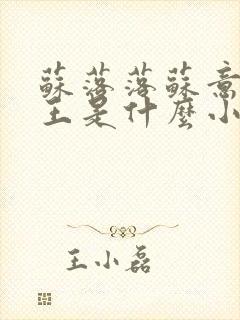 蘇落落蘇意
王是什麼小
王小磊